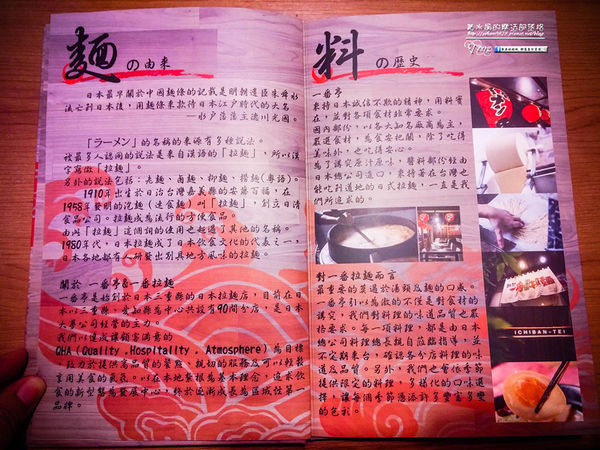 麵の由來
日本最早關於中國麵條的記載是明朝遺臣朱舜水
流亡到日本後,用麵條來款待日本江戶時代的大名
—水戶藩藩主德川光國。
「ラーメン」的名稱的來源有多種說法。
被最多人認同的說法是來自漢語的「拉麵」,所以漢
字寫做「拉麵」。
另外的說法包括:老麵、鹵麵、柳麵、撈麵(粵語)。
1910年出生於日治台灣嘉義縣的安藤百福,在
1958年發明的泡麵(速食麵)叫「拉麵」,創立日清
食品公司。拉麵成為流行的方便食品。
由於「拉麵」這個詞的使用也超過了其他的名稱。
1980年代,日本拉麵成了日本飲食文化的代表之一,
日本各地都有人研發出別具地方風味的拉麵。
關於 一番亭&一番拉麵
一番亭是始創於日本三重縣的日本拉麵店,目前在日
本以三重縣、愛知縣為中心共設有90間分店,是日本
大事公司經營的主力。
我們以達成讓顧客滿意的
QHA(Quality.Hospitality.Atmosphere)為目標
,致力於提供高品質的餐點、親切的服務及可以輕鬆
享用美食的氣氛。以在本地紮根為基本理念,追求飲
食的新型態為發展中心,終於逐漸成長為區域性第一
品牌。
料の歷史
一番亭
秉持日本誠信不欺的精神,用料實
在,並對各項食材非常要求。
國內部份,以各大知名廠商為主,
嚴選食材,為食安把關,除了吃得
美味外,也吃得安心。
為了講究原汁原味,醬料部份經由
日本總公司進口,秉持著在台灣也
能吃到道地的日式拉麵,一直是我
們所追求的。
對一番拉麵而言
最重要的莫過於湯頭及麵的口感。
一番亭引以為傲的不僅是對食材的
講究,我們對料理的味道品質也嚴
格要求。每一項料理,都是由日本
總公司料理總長親自蒞臨指導,並
不定期來台,確認各分店料理的味
道及品質。另外,我們也會依季節
提供限定的料理,多樣化的口味選
擇,讓每個季節憑添許多豐富多變
的色彩。
ICHIBAN-TEI